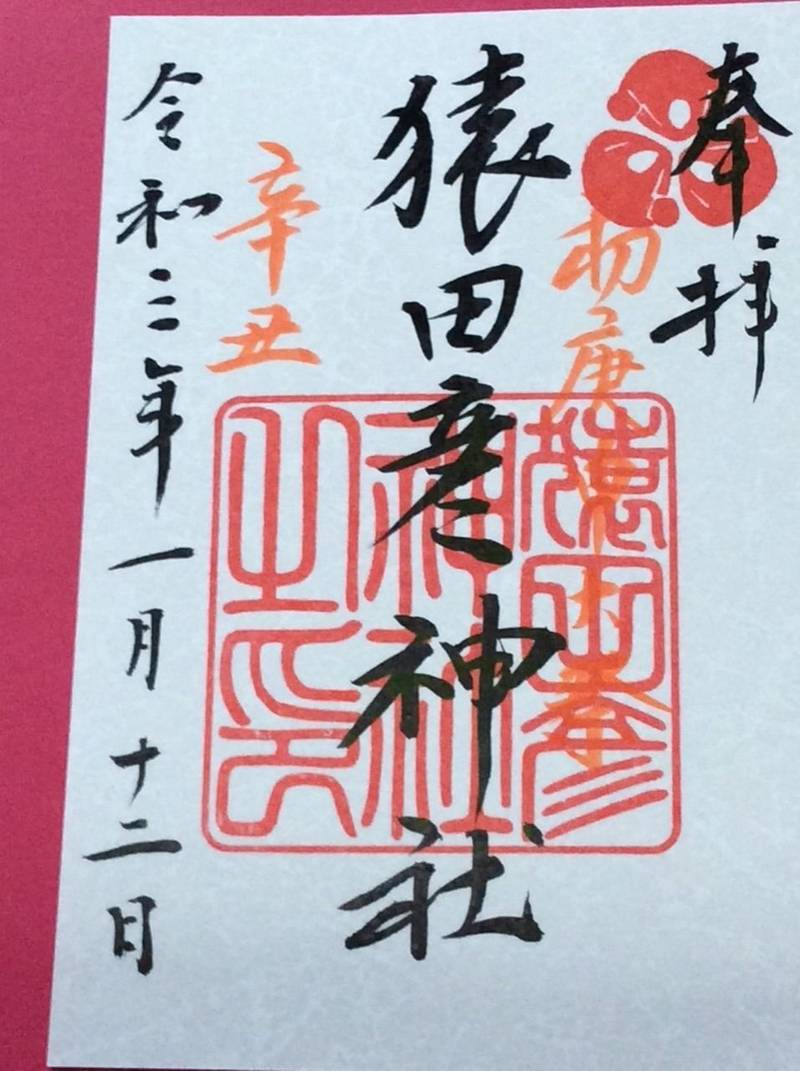 奉拝
初庚申大祭
猿田彦神社
猿田彦
神社
之印
辛丑
令和三年一月十二日